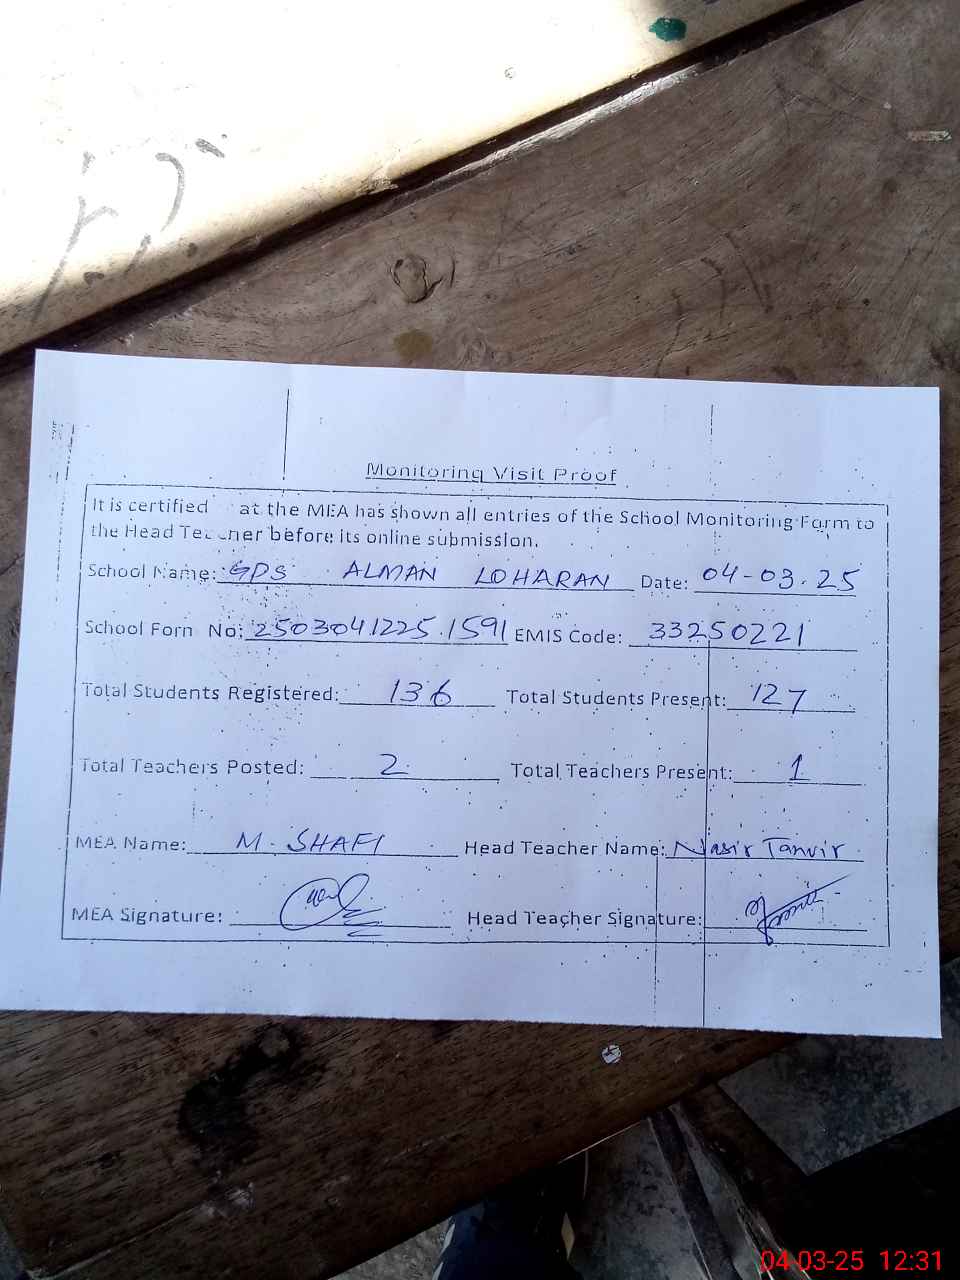 Monitoring Visit Proof
It is certified at the MEA has shown all entries of the School Monitoring Form to
the Head Teacher before its online submission.
School Name: GPS ALMAN LOHARAN Date: 04-03-25
School Form No: 25030412251591 EMIS Code: 33250221
Total Students Registered: 136 Total Students Present: 127
Total Teachers Posted: 2 Total Teachers Present: 1
MEA Name: M. SHAFI Head Teacher Name: Nasir Tanvir
MEA Signature: Head Teacher Signature:
04-03-25 12:31